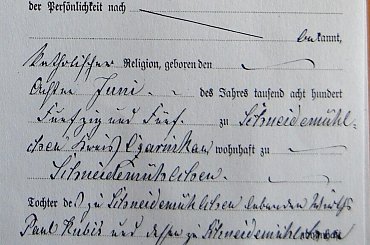 der Persönlichkeit nach
bekannt,
katholischer Religion, geboren den
achten Juni des Jahres tausend acht hundert
fünfzig und fünf zu Schneidemühl-
chen Kreis Czarnikau, wohnhaft zu
Schneidemühlchen.
Tochter des zu Schneidemühlchen lebenden Wirths
Paul Kubis und dessen zu Schneidemühlchen